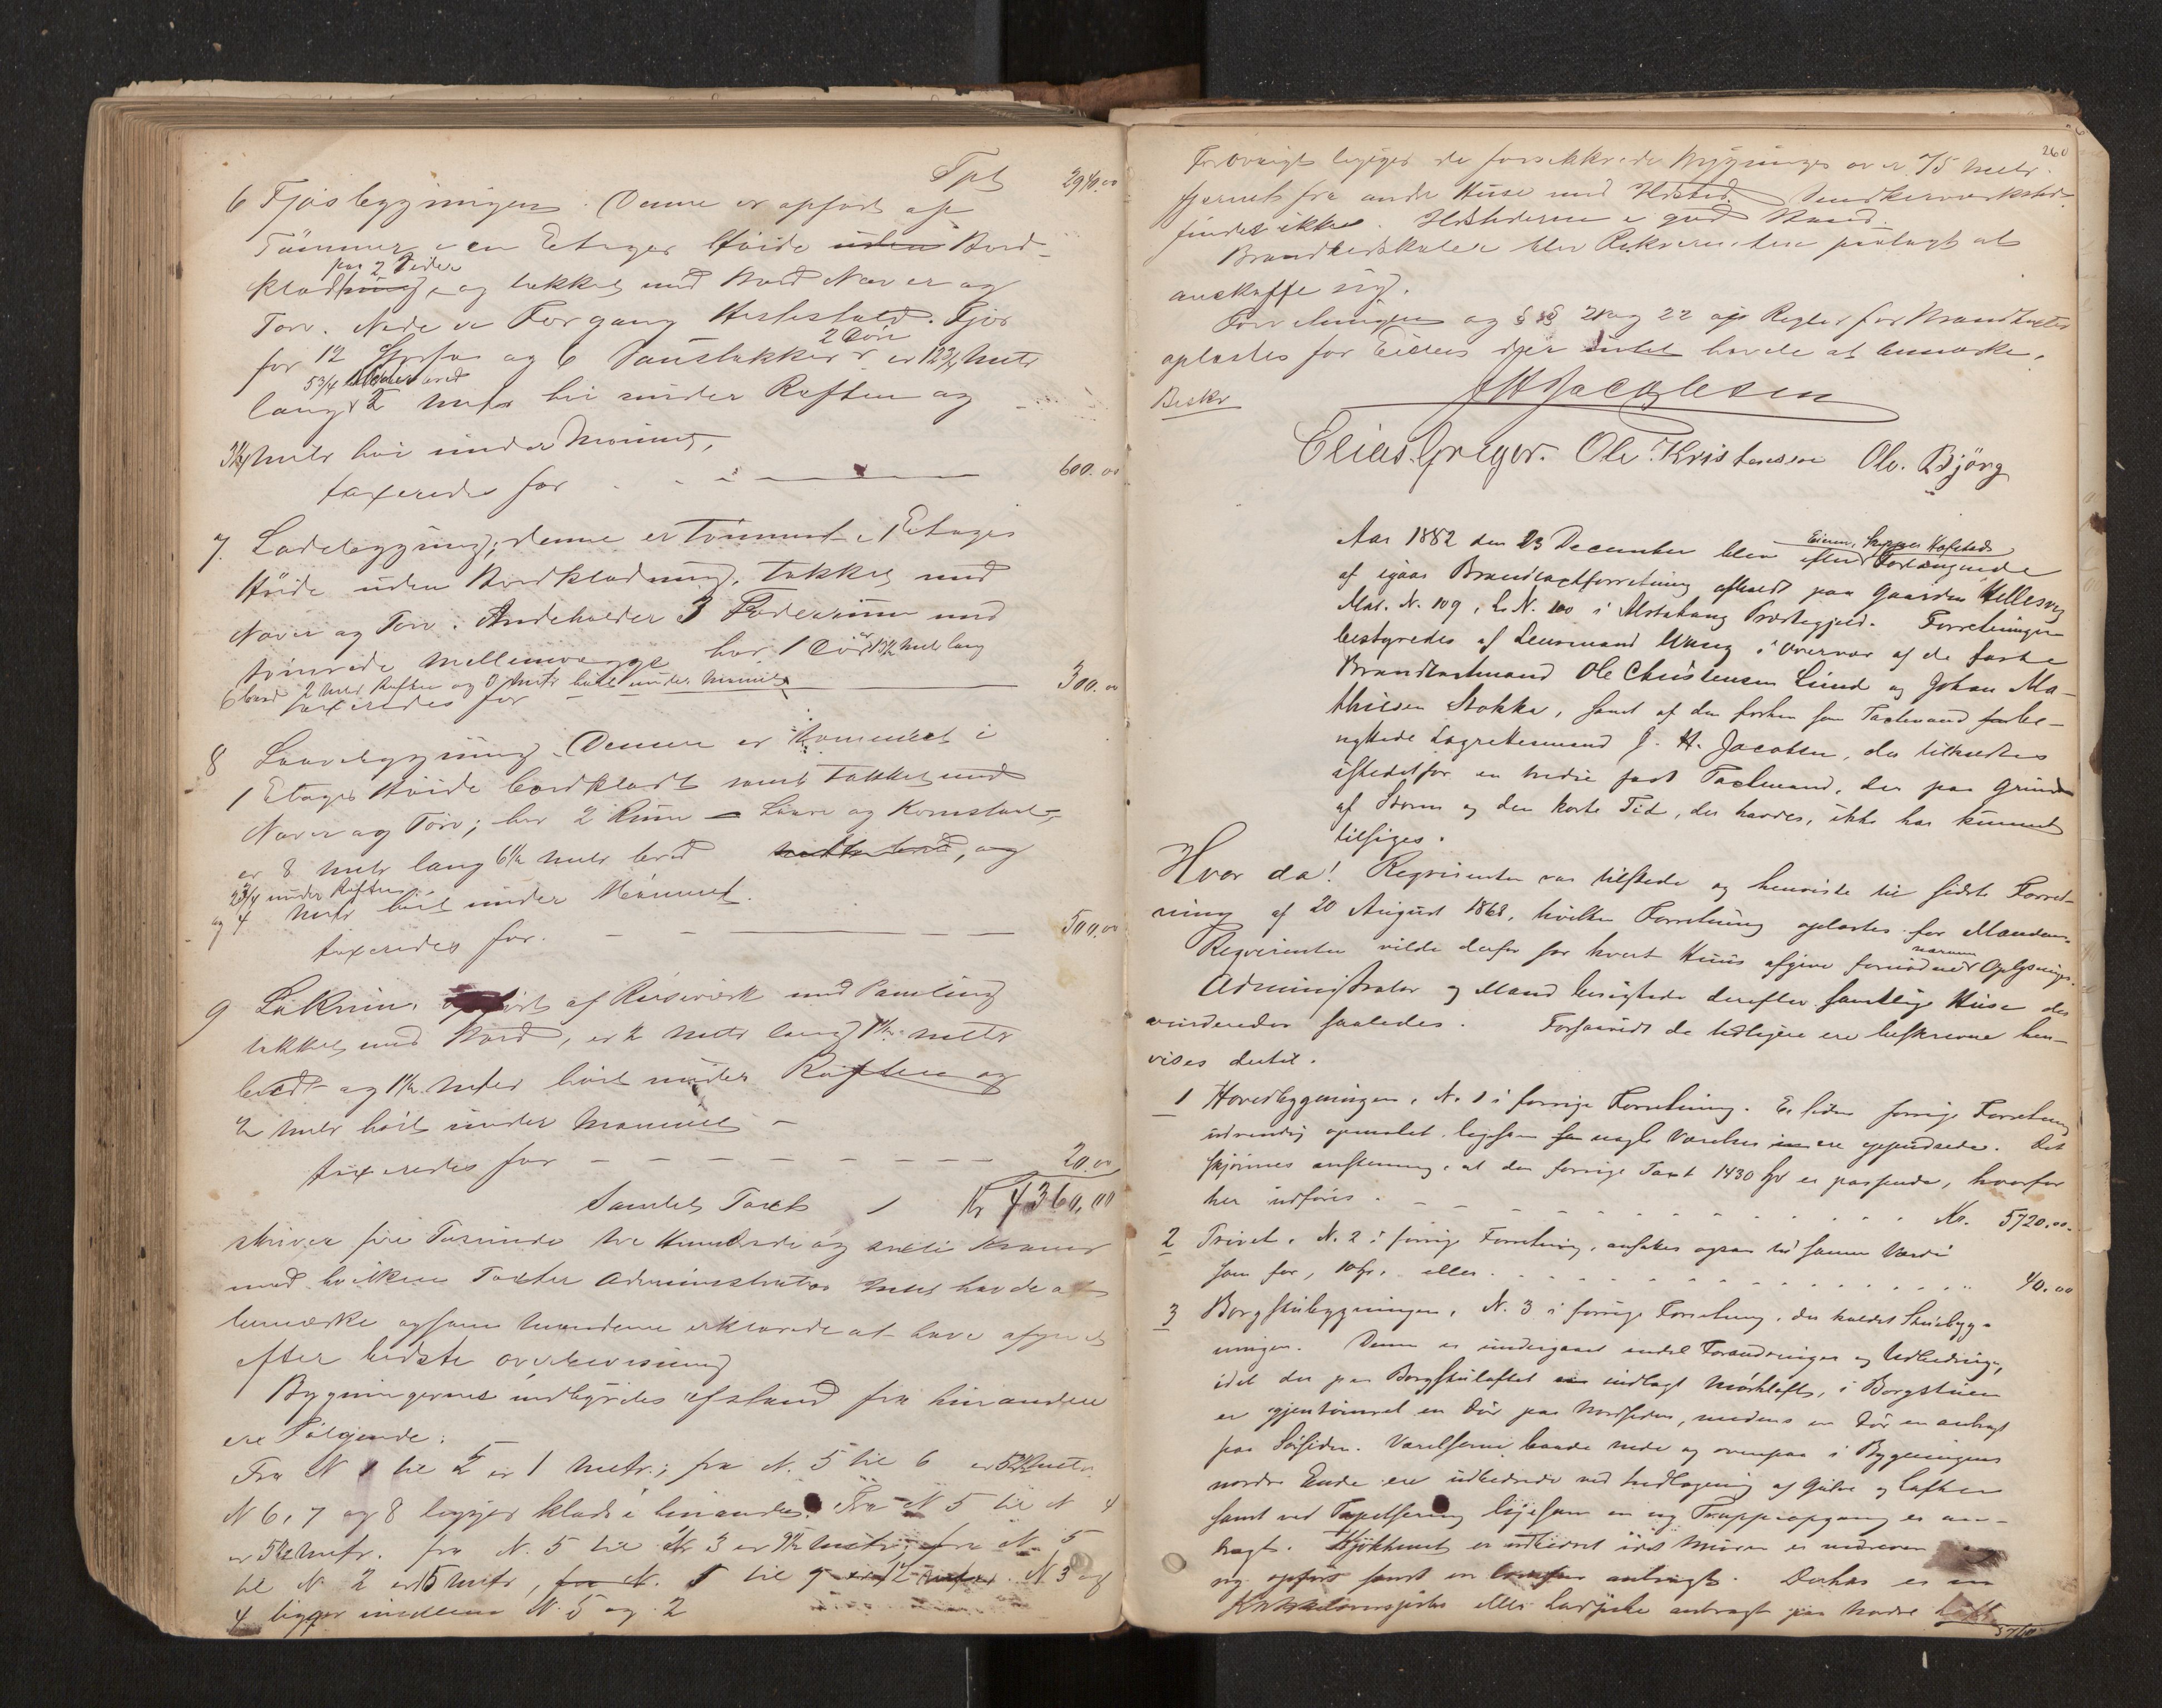 Tpt 2940.00
6 Fjøsbygningen. Denne er opført af
Tømmer i en Etages Høide uden Bord-
paa 2 Sider
klædning, og tækket med Bord Næver og
Torv. Nede er Forgang Hestestald. Fjøs
2 Dör
for 12 og 6 er 12 3/4 Metr
5 3/4 Meter bred
lang 2 Metr høi under Raften og
3 1/4 Metr høi under Mønnet,
taxeredes for 600.00
7. Ladebygning; denne er Tömmret i 1 Etages
Høide uden Bordklædning, Tækket med
Næver og Torv. Indeholder 3 Foderrum med
tömrede Mellemvægge har 1 Dør 13 1/2 Metr lang
6 bred 2 Metr Raften og 3 Metr høit under Mønnet
taxeredes for 300.00
8 Laavebygning. Denne er Tømmret i
1 Etages Høide bordklædt samt Tækket med
Næver og Torv; har 2 Rum – Laave og Kornstal-
er 8 Metr lang 6 1/2 Metr bred og
2 3/4 under Raften
og 4 Metr høit under Mønnet.
taxeredes for. 500.00
9 opført af Reisværk med Paneling
tækket med Bord, er 2 Metr lang 1 1/2 Metr
bredt og 1 1/2 Meter høit under Raften og
2 Metr høit under Mønnet –
taxeredes for 20.00
Samlet Taxt Kr 4360,00
skriver fire Tusinde tre Hundrede og sexti Kroner
med hvilken Taxter Administrator Intet havde at
bemærke ogsom Mændene erklærede at have afgivet
efter bedste overbevisning
Bygningernes indbyrdes afstand fra hinanden
ere Følgende:
Fra N 1 til 2 er 1 Metr; fra N. 5 til 6 er 5 Metr
N 6, 7 og 8 ligger klods i hinanden. Fra N 5 til N 4
er 5 1/2 Metr. fra N. 5 til Nr 3 er 9 1/2 Metr; fra N. 5
til N 2 er 15 Metr, fra N. 5 til 9 er 12 Metr. N 3 og
4 ligger imellem N. 5 og 2
260
Forøvrigt ligger de forsikkrede Bygninger over 75 Metr.
fjernet fra andre Huse med Ildsted. Snedkerværksted
findes ikke. Ildstederne i god Stand.
Brandredskaber blev Rekvirenten paalagt at
anskaffe sig.
Forretningen og §§ 21 og 22 af Regler for Brandtaxter
oplæstes for Eieren der intet havde at bemærke.
Beskr JH Jacobsen
Elias Greger. Ole Kristensen Ole. Björg
Eieren, Skipper Hofstads
Aar 1882 den 23 December blev efter Forlangende
af igaar Brandtaxtforretning afholdt paa Gaarden Hellesvig
Mat. N. 109, L. N. 100 i Alstahaug Præstegjeld. Forretningen
bestyredes af Lensmand Wang i Overvær af de faste
Brandtaxtmænd Ole Christensen Lund og Johan Ma-
thisen Stokka, samt af den forhen som Taxtmand be-
nyttede Lagrettesmand J. H. Jacobsen, der tilkaldtes
istedetfor en tredie fast Taxtmand, der paa Grund
af Storm og den korte Tid, der havdes, ikke har kunnet
tilsiges.
Hvor da! Reqvirenten var tilstede og henviste til sidste Forret-
ning af 20 August 1868, hvilken Forretning oplæstes for Mændene.
Reqvirenten vilde derfor for hvert Huus afgive fornødne nærmere Oplysninger.
Administrator og Mænd besigtede derefter samtlige Huse der
vurderedes saaledes. Forsaavidt de tidligere ere beskrevne hen-
vises dertil.
1 Hovedbygningen, N. 1 i forrige Forretning. Er siden forrige Forretning
udvendig opmalet ligesom nogle Værelser ere oppudsede. Det
skjønnes at den forrige Taxt 1430 Spd er passende, hvorfor
her udføres. Kr. 5720.00.
2 Privet. N. 2 i forrige Forretning, ansættes ogsaa til samme Værdi
som før, 10 Spd, eller 40.00
3 Borgstubygningen, N. 3 i forrige Forretning, der kaldet Stuebyg-
ningen. Denne er undergaaet endel Forandringer og Udbedringer,
idet der paa Borgstuloftet er indlagt Mørkloft, i Borgstuen
er gjentømret en Dør paa Nordsiden, medens en Dør er anbragt
paa Sørsiden. Værelserne baade nede og ovenpaa i Bygningens
nordre Ende ere udbedrede ved Indlægning af Gulve og Lofter
samt ved Tapetsering ligesom en ny Trappeopgang er an-
bragt. Kjøkkenet er udbedret idet Muren er nedreven og
ny opført samt en Komfur anbragt. Derhos er en
Kakkelovnspibe eller Ladpibe anbragt paa Nordre Loft
5760